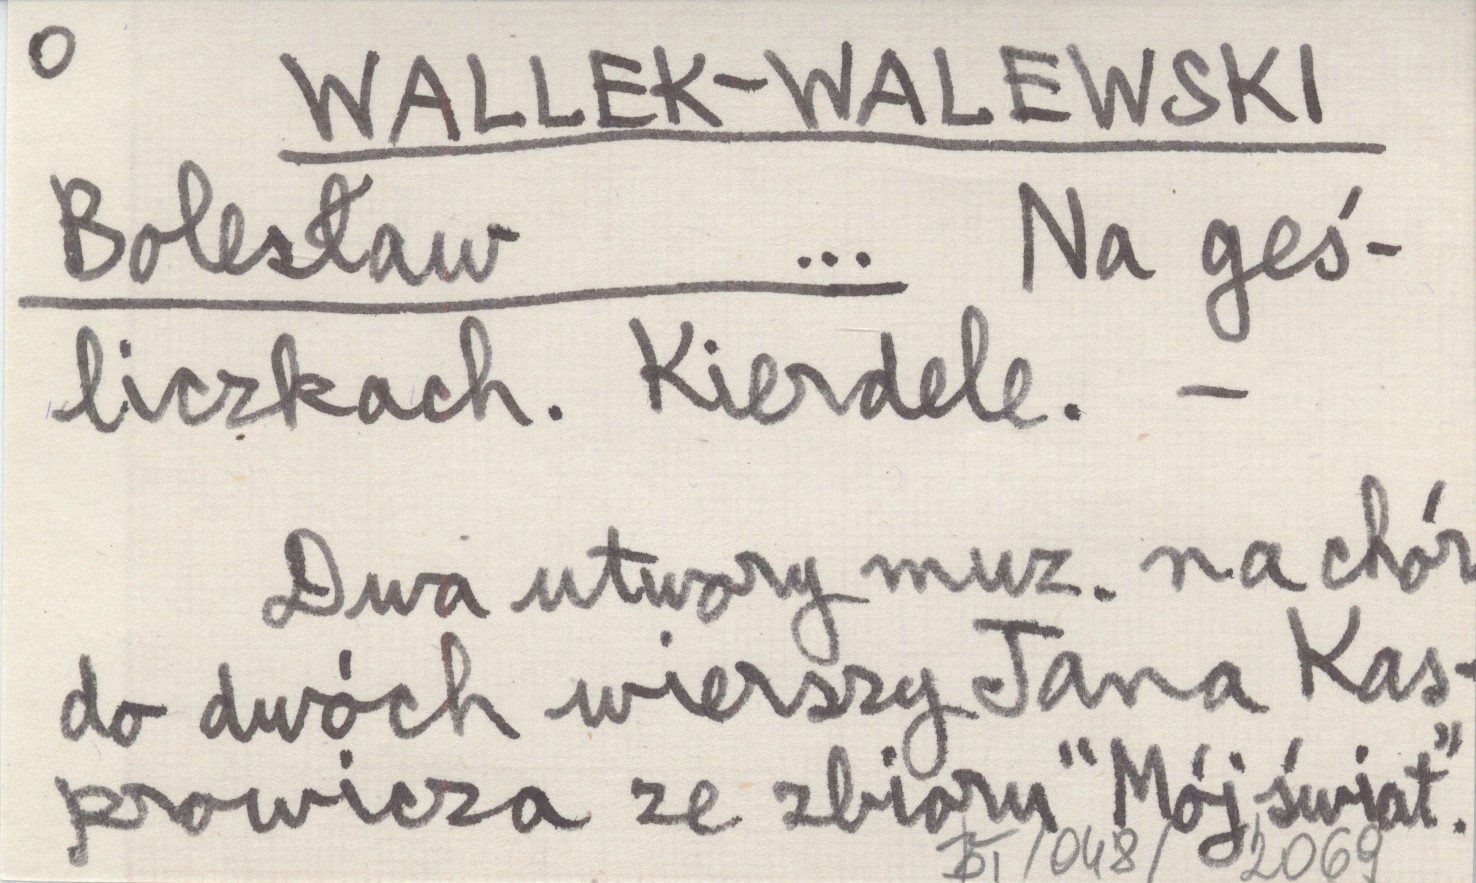 O
WALLEK-WALEWSKI
Bolesław ... Na geś-
liczkach. Kierdele. —
Dwa utwory muz. na chór
do dwóch wierszy Jana Kas-
prowicza ze zbioru "Mój świat".
/048/ 2069